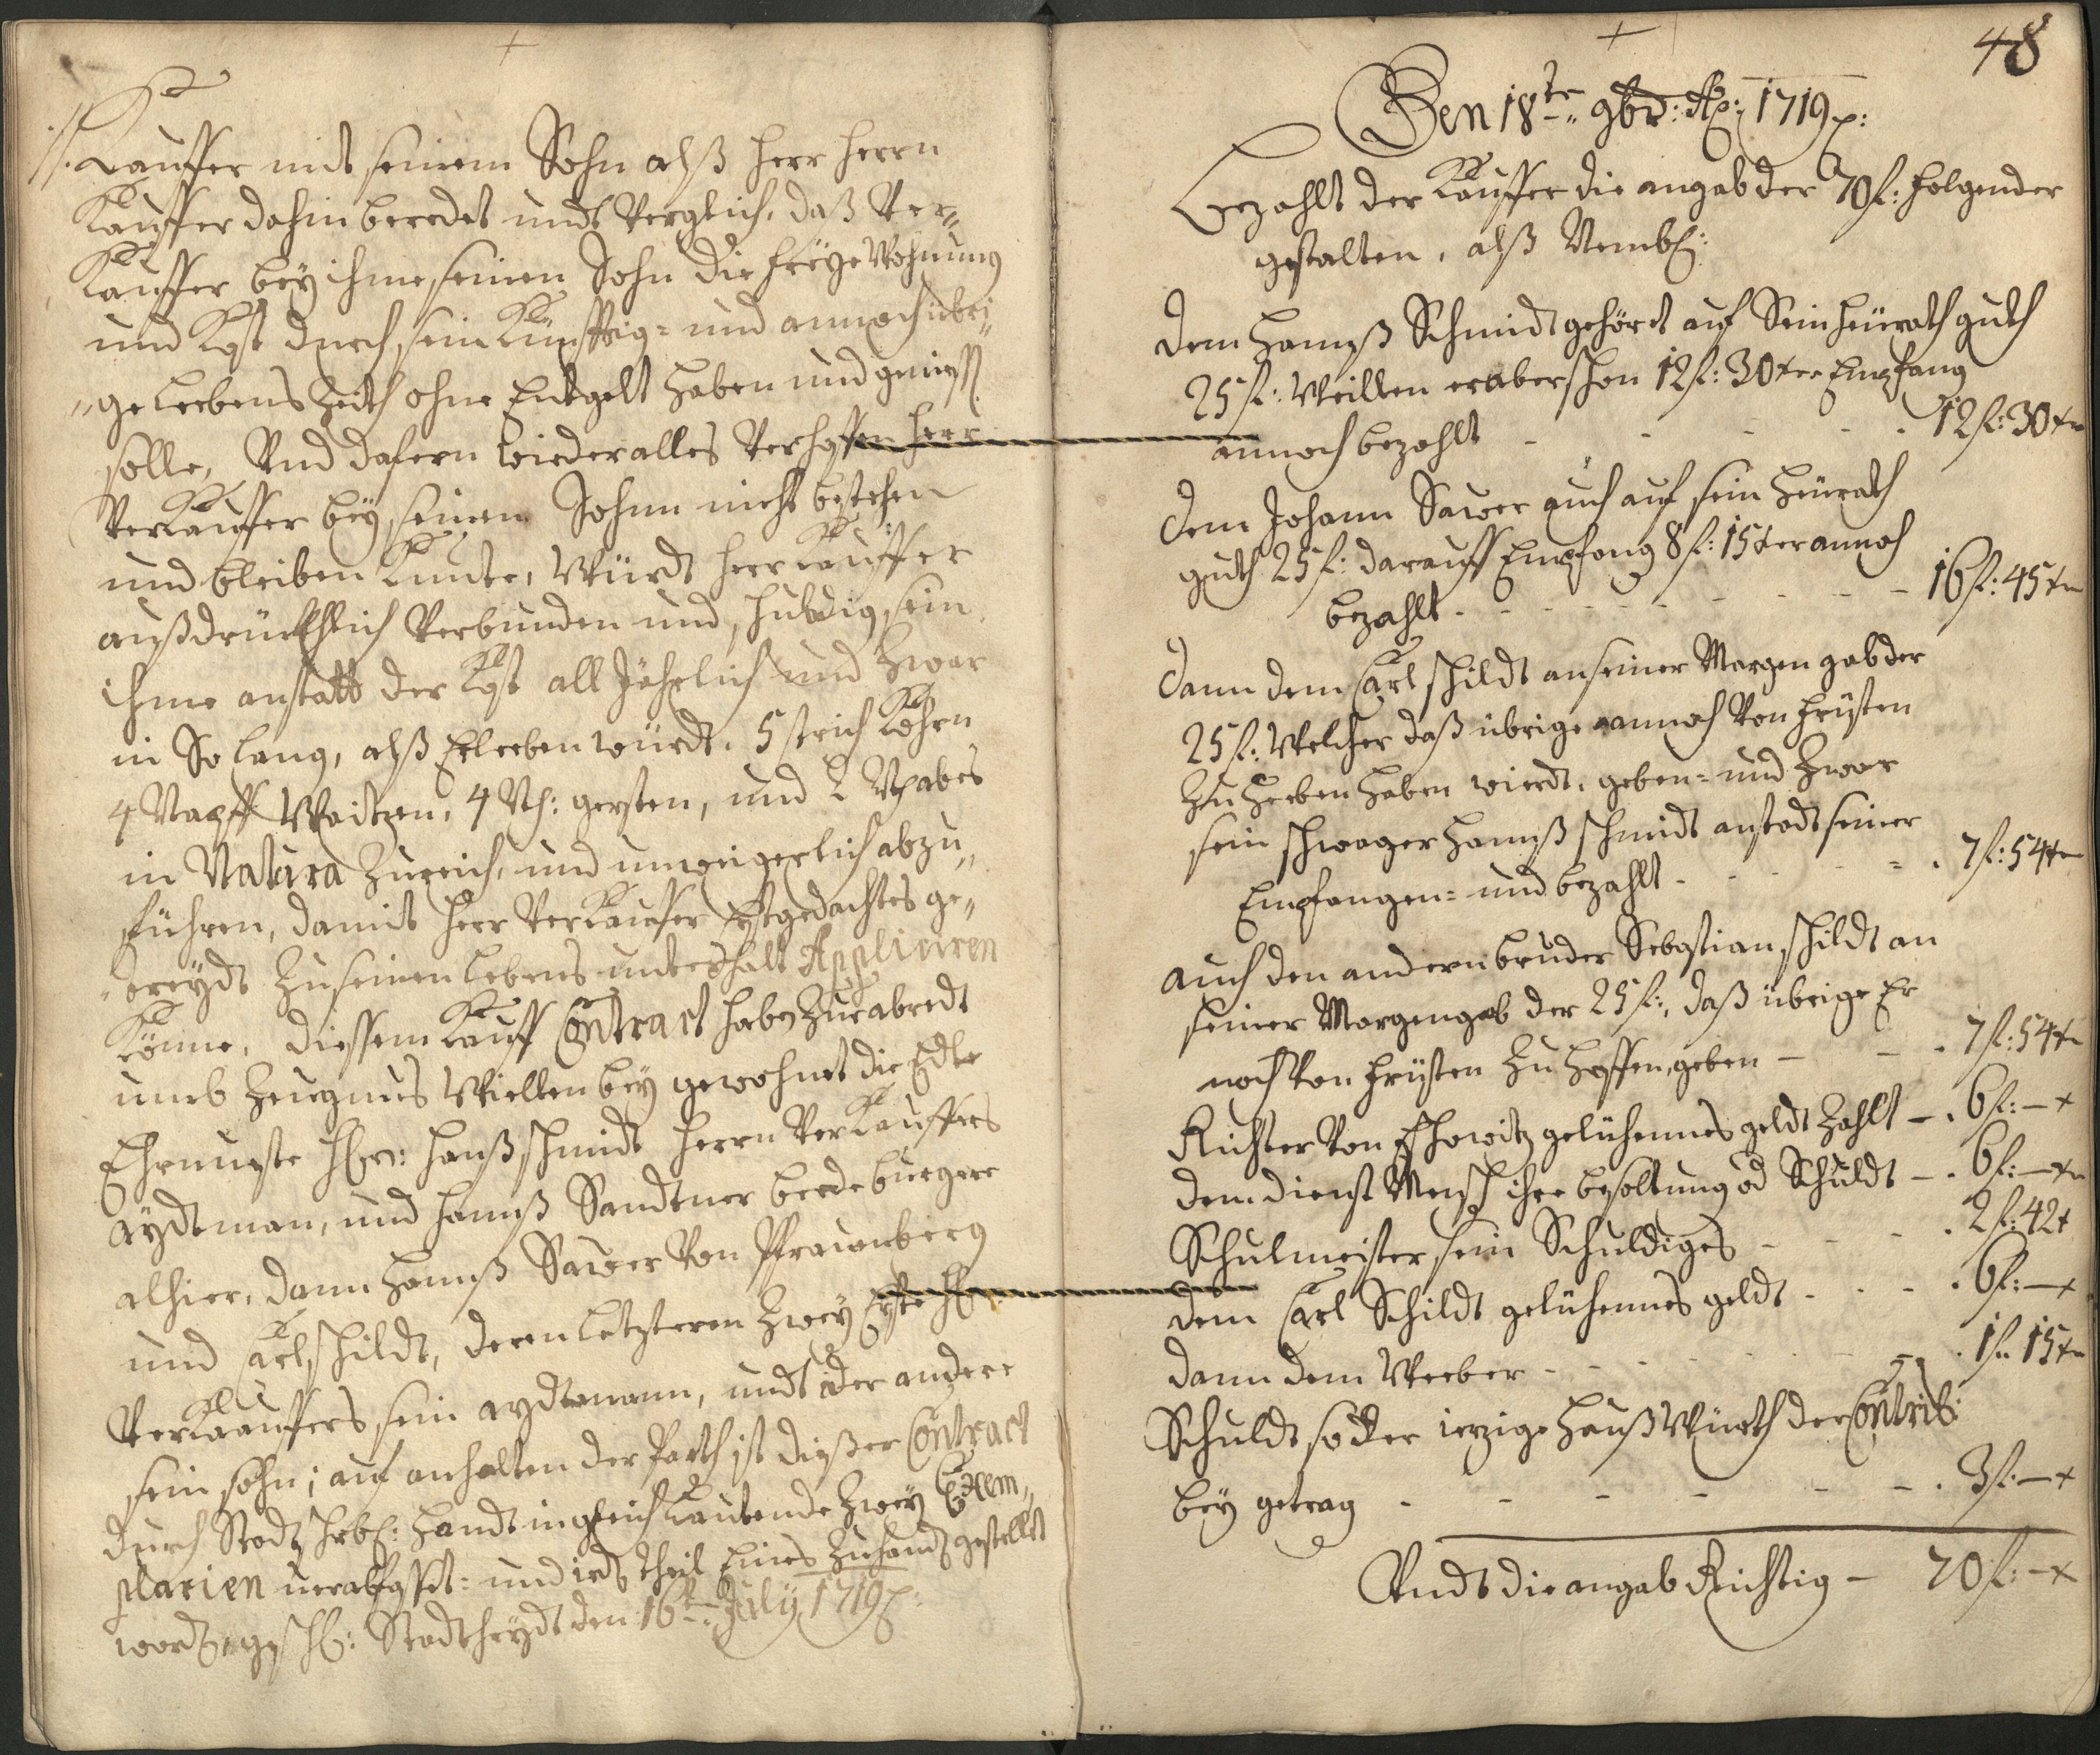 ./. Kauffer mit seinem Sohn alß herr herrn
Kauffer dahin beredet undt Verglich, daß Ver„
Kauffer beÿ ihme seinen Sohn die freÿe Wohnung
und Kost durch sein Künfftig= und annoch übri„
„ge Leebens Zeith ohne Entgelt haben und genüß.
solle, Und dafern wieder alles Verhoffen herr
Verkauffer beÿ seinen Sohnn nicht bestehen
und bleiben Kunte, Würdt herr Kauffer
außdrückhlich Verbunden und schuldig sein
ihme anstatt der Kost all Jährlich und Zwar
in So lang, alß Er leeben würdt. 5 strich Kohrn
4 Napff Waitzen, 4 N: gersten, und 2 N habes
in Natura Zureich, und unweigerlich abzu„
führen, damit herr Verkauffer Estgedachtes ge„
„treÿdt Zu seinen Lebens unterhalt Appliciren
Könne. diessem Kauff Contract haben Zur abredt
umb Zeugnus Willen beÿ gewohnet die Edle
Ehrnveste h: Hanß schmidt herrn Verkauffers
aÿdtman, und Hannß Sandtner beede burgere
alhier, dann Hannß Sawer Von Pfrauenberg
und Carl schildt, deren Letzteren Zweÿ Erste
Verkauffers sein aÿdtmann, undt der andere
sein sohn; auf anhalten der Parth ist dießer Contract
durch Stadtschrbl: Handt in gleich Lautende Zweÿ Exem„
plarien verabfasst= und ieds theil Eines Zuhandt gestellet
wordt. gesch: Stadt heÿdt den 16t July 1719
48
Den 18te 9br: Ao: 1719
Bezahlt der Kauffer die angab der 70 f: folgender
gestalten, alß Nembl:
dem Hannß Schmidt gehört auf Sein heürath guth
25 f: Weillen er aber schon 12 f: 30 xr Empfang
annoch bezahlt - - - - 12 f: 30 xr
dem Johann Sawer auch auf sein heürath
guth 25 f: darauff Empfang 8 f: 15 xr annoch
bezahlt - - - - 16 f: 45 xr
dann dem Carl schildt an seiner Morgen gab der
25 f: Welcher daß übrige annoch Von frÿsten
Zu heeben haben wierdt, geben= und Zwar
sein schwager Hannß schmidt anstadt seiner
Empfangen= und bezahlt - - - - 7 f: 54 xr
auch den andern bruder Sebastian schildt an
seiner Morgengab der 25 f:, daß übrige Er
noch Von frÿsten Zu hoffen, geben - - 7 f: 54 xr
Richter Von gelühennes geldt Zahlt - 6 f: - x
dem dienst Mensch ihre besoltung od Schuldt - 6 f: - xr
Schulmeister sein Schuldiges - - - 2 f: 42 x
dem Carl Schildt gelühennes geldt - - - 6 f: - x
dann dem Weeber - - - - 1 f: 15 xr
Schuldt so der ietzige Hauß Würth der Contrib:
beÿ getrag - - - - 3 f: - x
Undt die angab Richtig - 70 f: - x